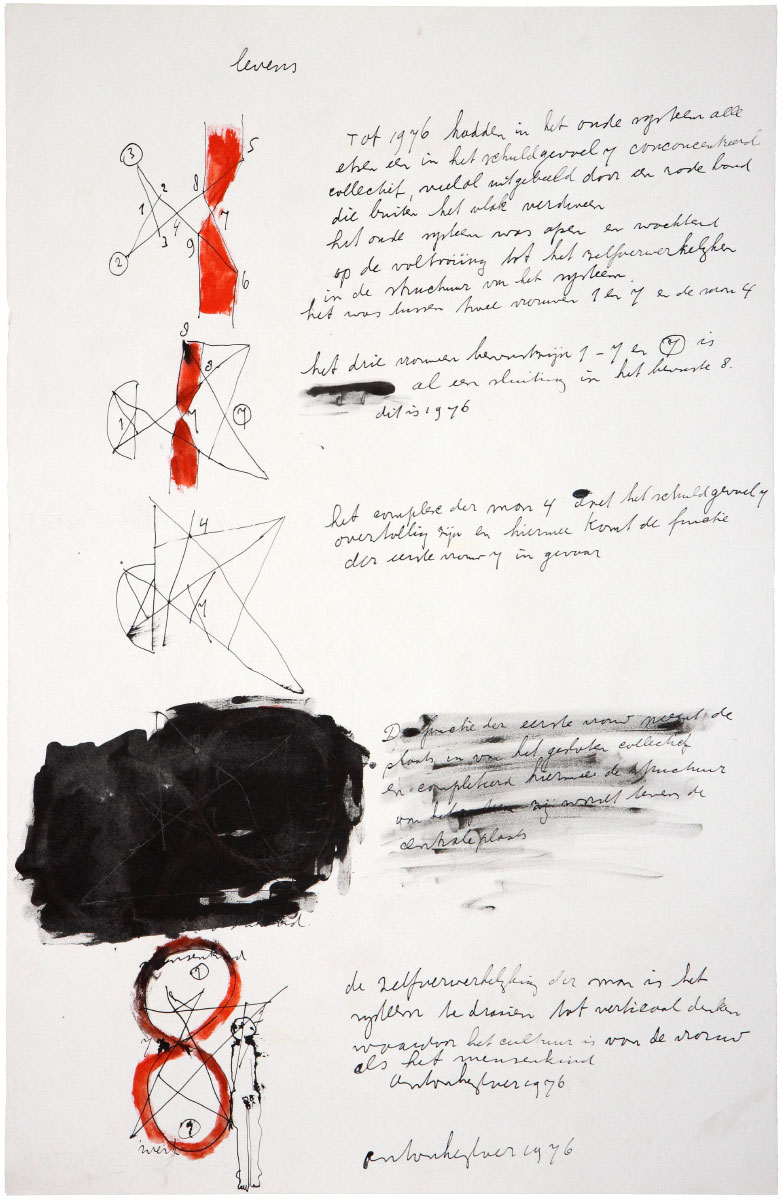 levens
Tot 1976 hadden in het oude systeem alle
een in het schuldgevoel 7
collectief, veelal uitgebeeld door een rode band
die buiten het vlak verdween
het oude systeem was open en wachtend
op de voltrooiing tot het zelfverwerkelijken
in de structuur van het systeem.
het was tussen twee vrouwen 1 en 7 en de man 4
3
2
1
2
3
4
5
6
7
8
9
het drie vrouwen bewustzijn 1 - 7 en 7 is
al een sluiting in het bewuste 8.
dit is 1976
9
8
1
7
7
het complex der man 4 doet het schuldgevoel 7
overtollig zijn en hiermee komt de functie
der eerste vrouw 7 in gevaar
4
7
De functie der eerste vrouw neemt de
plaats in van het gesloten collectief
en completeerd hiermee de structuur
van het zij wordt levens de
centrale plaats
mensenkind
1
7
9
werk
de zelfverwerkelijking der man is het
systeem te draaien tot verticaal denken
waardoor het cultuur is van de vrouw
als het mensenkind
antonheyboer 1976
antonheyboer 1976